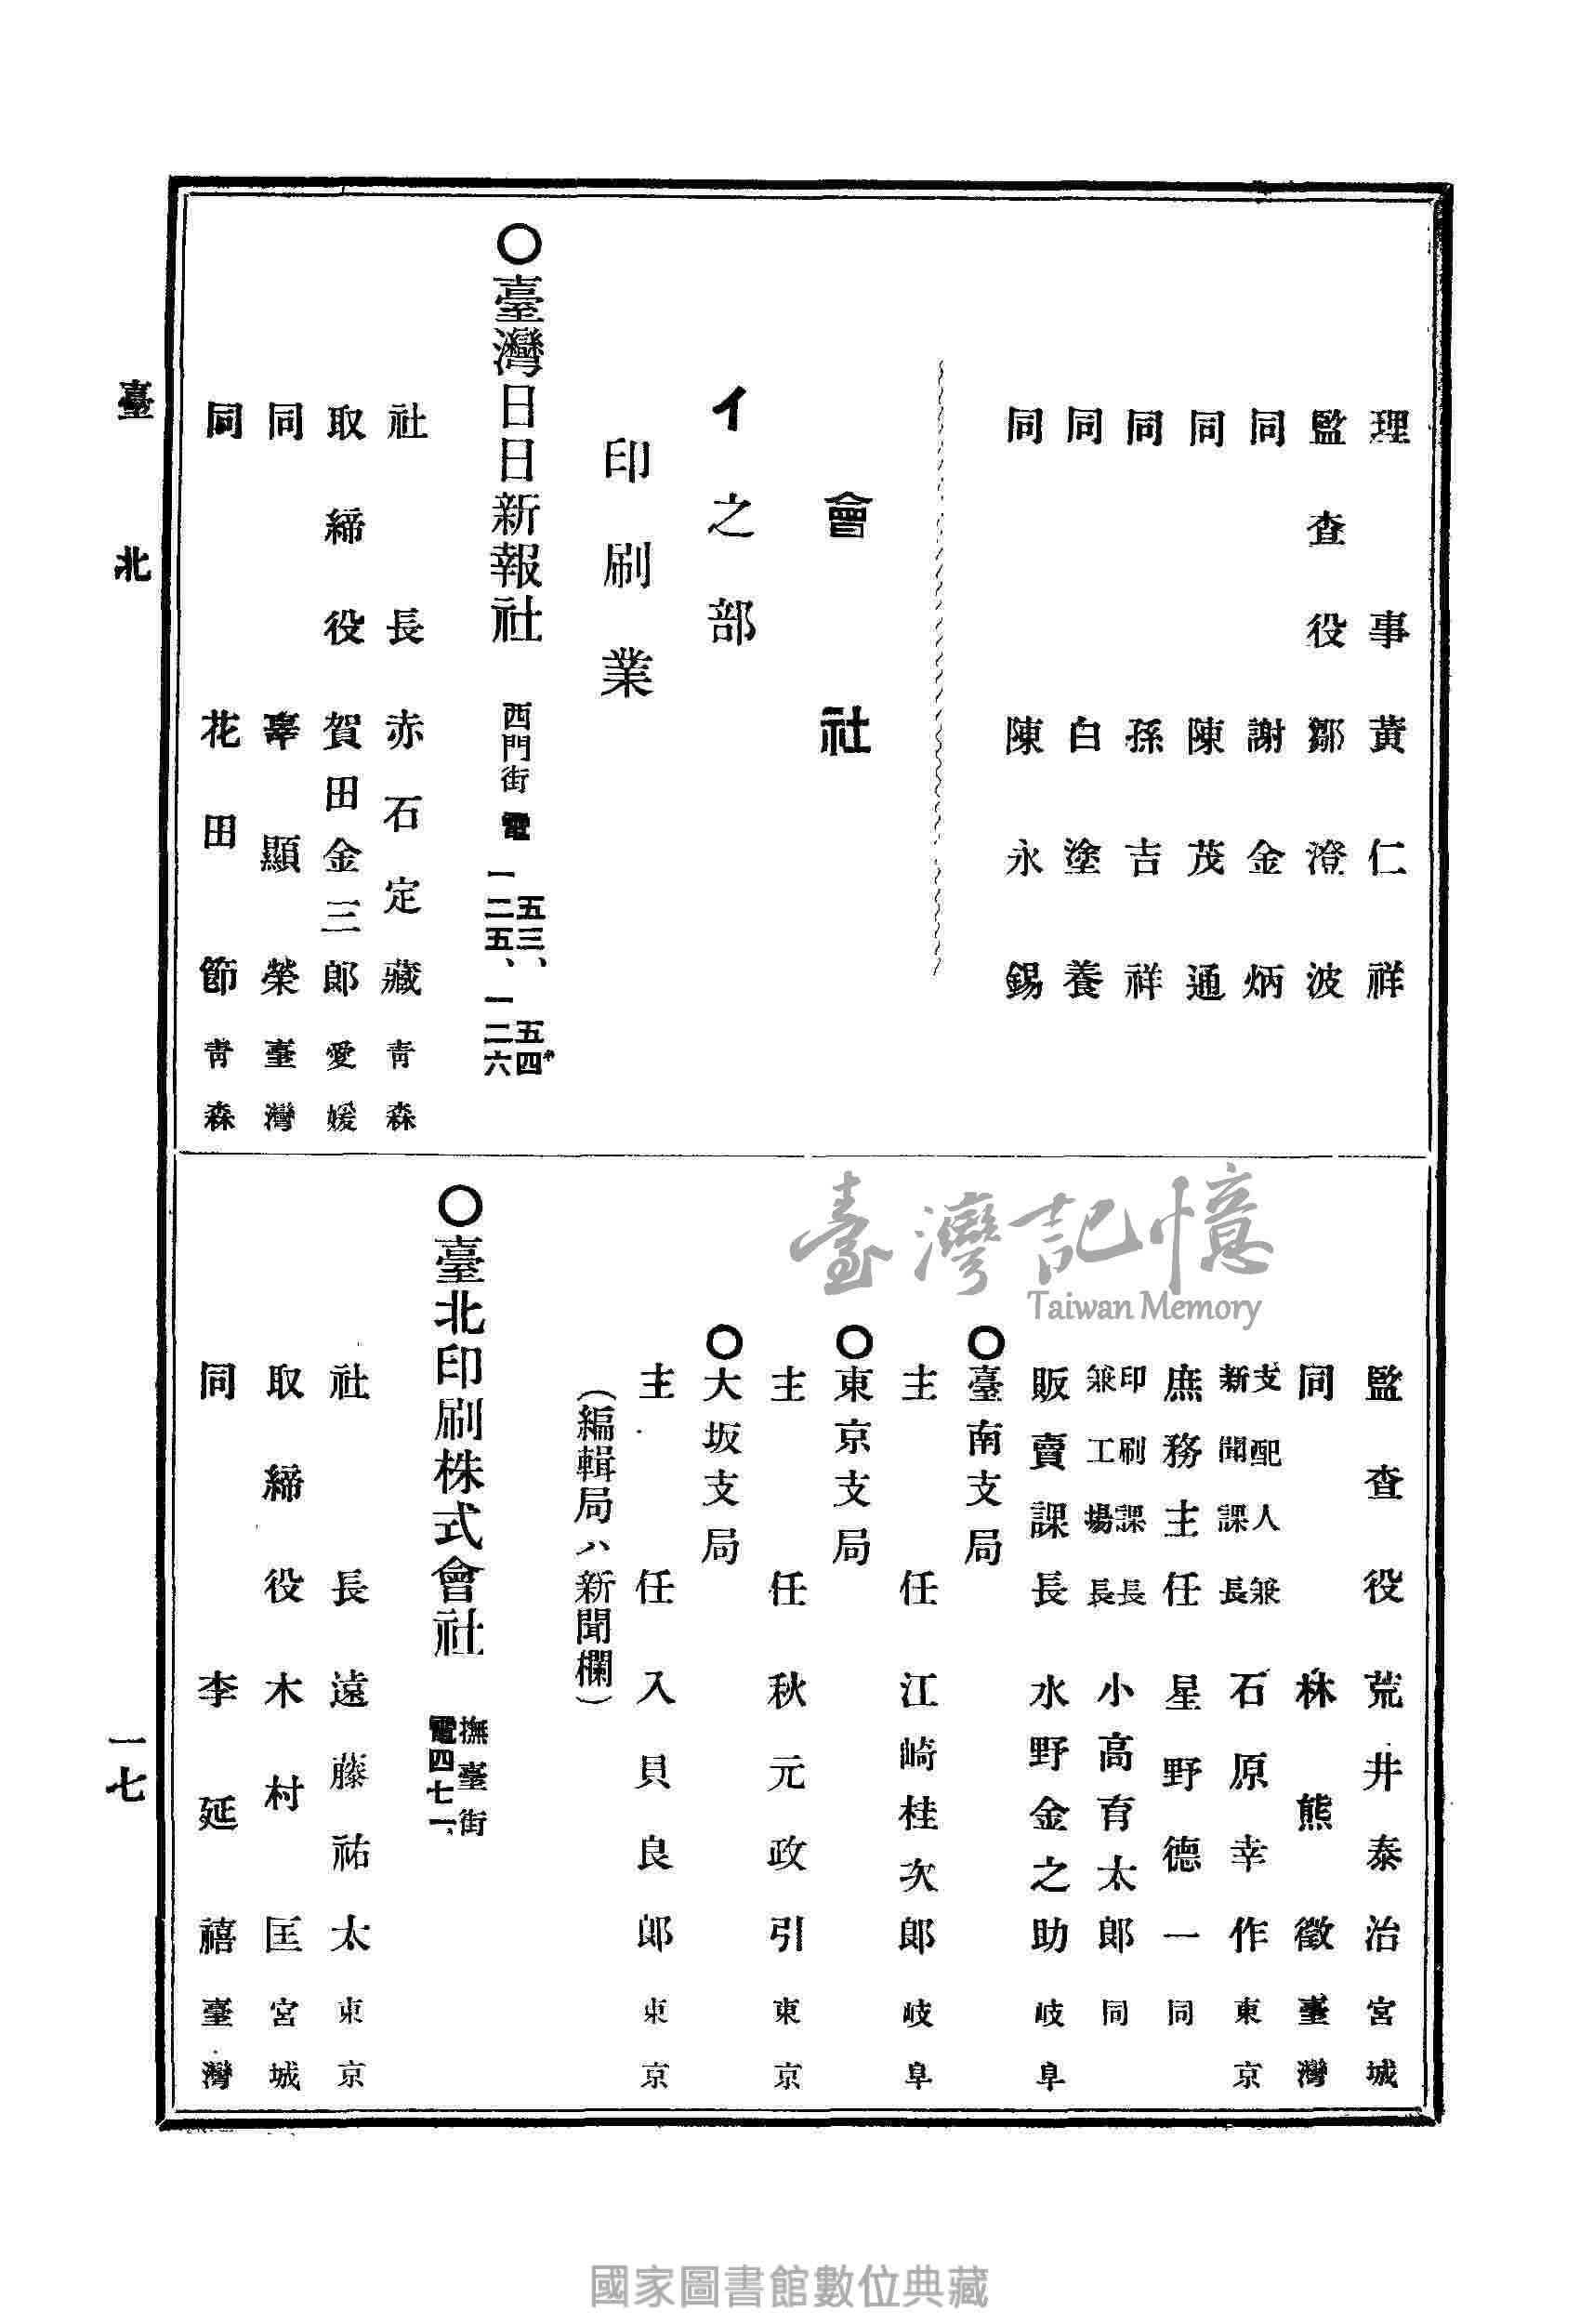 理事 黄仁祥
監査役 鄒澄波
同 謝金炳
同 陳茂通
同 孫吉祥
同 白塗養
同 陳永錫
會社
イ之部
印刷業
〇臺灣日日新報社 西門街 電 五三、五四 一二五、一二六
社長 赤石定藏 青森
取締役 賀田金三郎 愛媛
同 辜顯榮 臺灣
同 花田節 青森
監査役 荒井泰治 宮城
同 林熊徵 臺灣
支配人兼新聞課長 石原幸作 東京
庶務主任 星野德一 同
印刷課長兼工場長 小高育太郎 同
販賣課長 水野金之助 岐阜
〇臺南支局
主任 江崎桂次郎 岐阜
〇東京支局
主任 秋元政引 東京
〇大坂支局
主任 入貝良郎 東京
（編輯局ハ新聞欄）
〇臺北印刷株式會社 撫臺街 電四七一、
社長 遠藤祐太 東京
取締役 木村匡 宮城
同 李延禧 臺灣
臺北
一七
臺灣記憶
Taiwan Memory
國家圖書館數位典藏